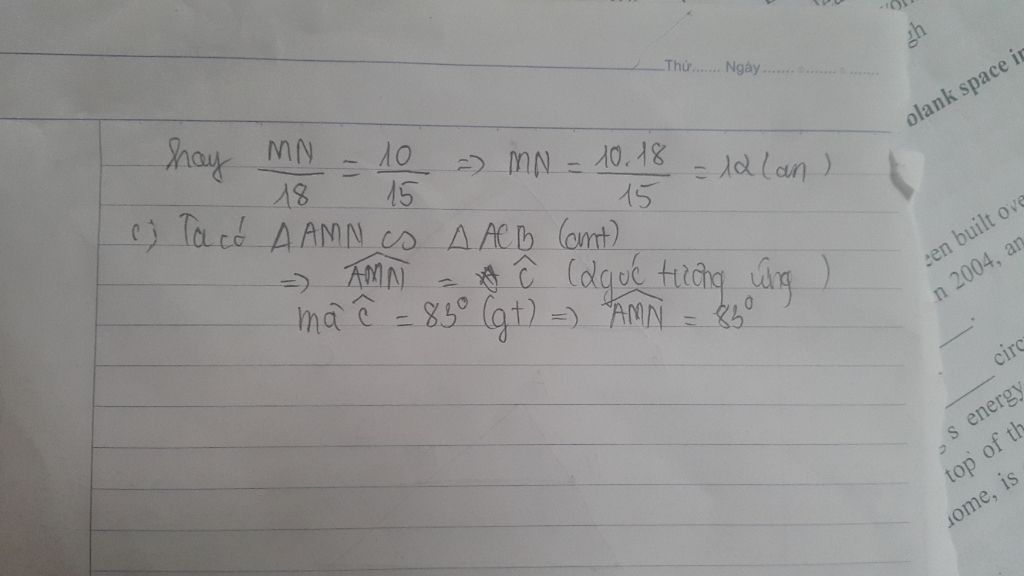 Thứ....... Ngày.......
hay MN/18 = 10/15 => MN = 10.18/15 = 12 (cm)
c) Ta có ΔAMN ∽ ΔACB (cmt)
=> AMN̂ = Ĉ (2 góc tương ứng)
mà Ĉ = 83⁰ (gt) => AMN̂ = 83⁰
gh
blank space in
een built ove
n 2004, an
circ
s energy
top of th
ome, is